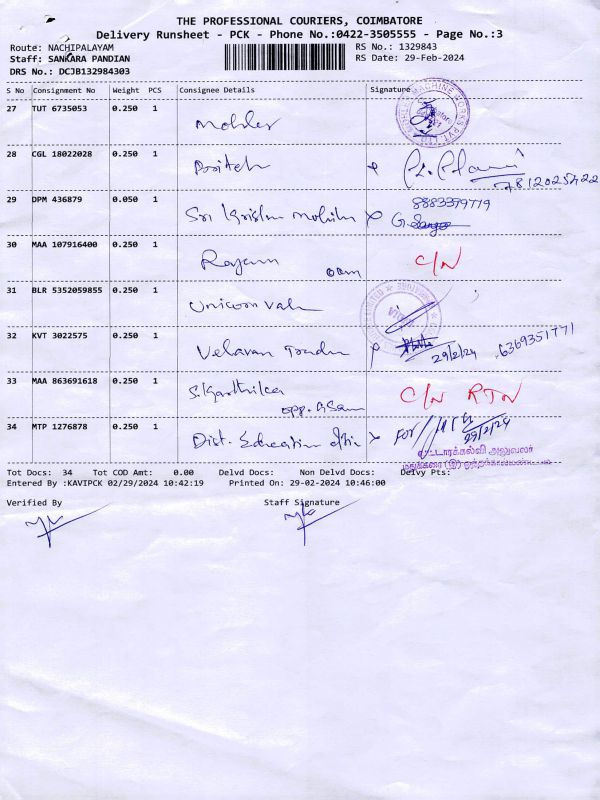 THE PROFESSIONAL COURIERS, COIMBATORE
Delivery Runsheet - PCK - Phone No.:0422-3505555 - Page No.:3
Route: NACHIPALAYAM RS No.: 1329843
Staff: SANKARA PANDIAN RS Date: 29-Feb-2024
DRS No.: DCJB132984303
S No Consignment No Weight PCS Consignee Details Signature
27 TUT 6735053 0.250 1
28 CGL 18022028 0.250 1
29 DPM 436879 0.050 1 Sri Krishna 8883379719
30 MAA 107916400 0.250 1 C/N
31 BLR 5352059855 0.250 1 Unicorn
32 KVT 3022575 0.250 1 Velavan 29/2/24 6369351771
33 MAA 863691618 0.250 1 S. Karthika opp. C/N RTN
34 MTP 1276878 0.250 1 Dist. Education For 29/2/24
வட்டாரக்கல்வி அலுவலர்
Tot Docs: 34 Tot COD Amt: 0.00 Delvd Docs: Non Delvd Docs: Delvy Pts:
Entered By :KAVIPCK 02/29/2024 10:42:19 Printed On: 29-02-2024 10:46:00
Verified By Staff Signature